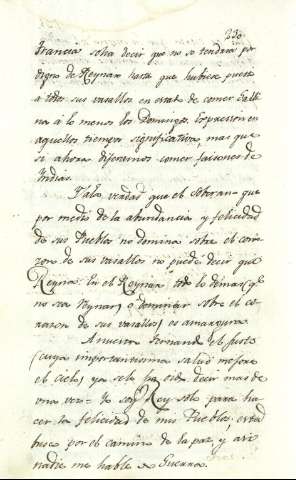 230
Francia solia decir que no se tendria por
digno de Reynar hasta que hubiese puesto
a todos sus vasallos en estat de comer Galli
na à lo menos los Domingos. Expresion en
aquellos tiempos significativa, mas que
si ahora dixeramos comer faisones de
Indias.
verdad que el Soberan- que
por medio de la abundancia y felicidad
de sus Pueblos no domina sobre el cora
zon de sus vasallos no puede decir que
Reyna. En el Reynar todo lo demas (q.e
no sea reynar, o dominar sobre el co
razon de sus vasallos) es amargura
A nuestro Fernando el justo
(cuya importantisima salud mejore
el cielo) ya se le ha oido decir mas de
una vez = Yo soy Rey solo para ha
cer la felicidad de mis Pueblos, esta
busco por el camino de la paz, y asi
nadie me hable de Guerra.